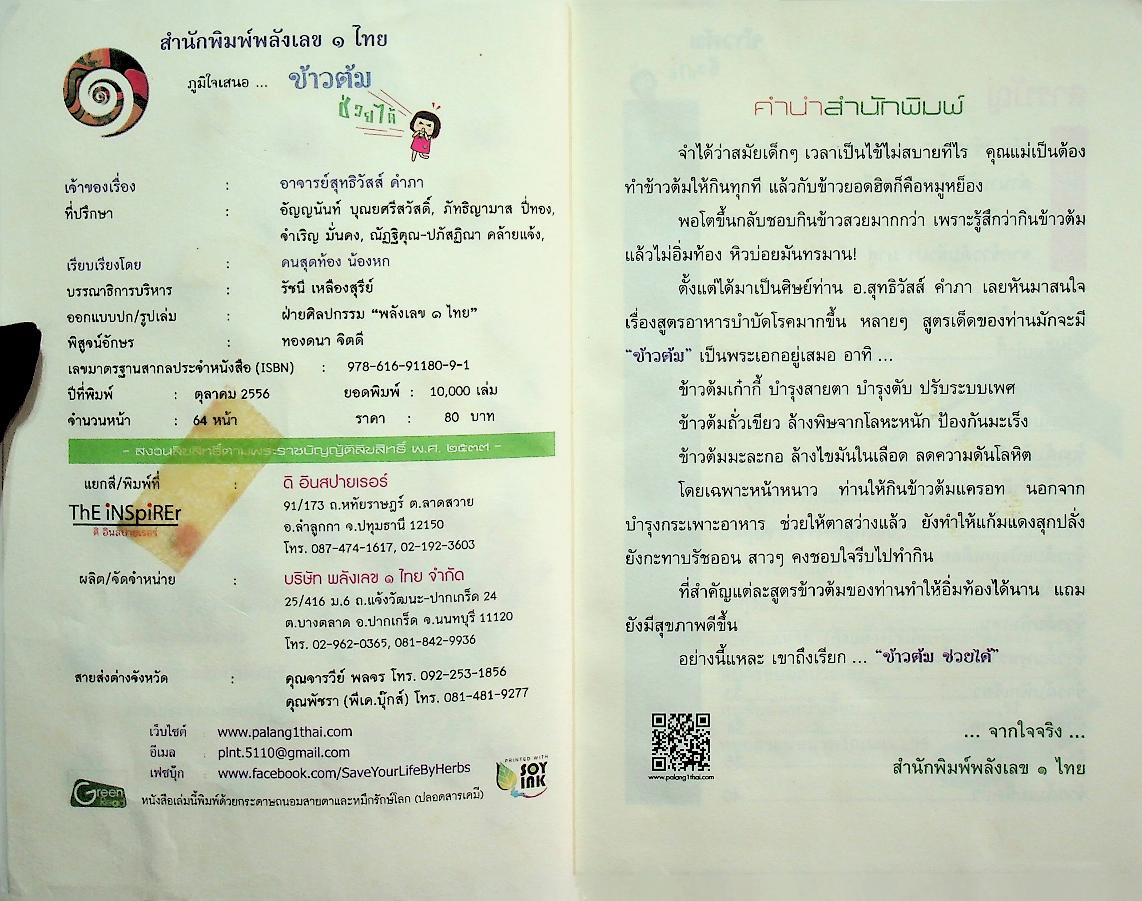 สำนักพิมพ์พลังเลข ๑ ไทย
ภูมิใจเสนอ ... ข้าวต้ม
ช่วยได้
เจ้าของเรื่อง : อาจารย์สุทธิวัสส์ คำภา
ที่ปรึกษา : อัญญนันท์ บุณยศรีสวัสดิ์, ภัทธิญามาส ปีทอง,
จำเริญ มั่นคง, ณัฏฐิคุณ-ปภัสฏิณา คล้ายแจ้ง,
เรียบเรียงโดย : คนสุดท้อง น้องหก
บรรณาธิการบริหาร : รัชนี เหลืองสุรีย์
ออกแบบปก/รูปเล่ม : ฝ่ายศิลปกรรม “พลังเลข ๑ ไทย”
พิสูจน์อักษร : ทองดนา จิตดี
เลขมาตรฐานสากลประจำหนังสือ (ISBN) : 978-616-91180-9-1
ปีที่พิมพ์ : ตุลาคม 2556 ยอดพิมพ์ : 10,000 เล่ม
จำนวนหน้า : 64 หน้า ราคา : 80 บาท
- สงวนลิขสิทธิ์ตามพระราชบัญญัติลิขสิทธิ์ พ.ศ. ๒๕๓๗ -
แยกสี/พิมพ์ที่ : ดิ อินสปายเรอร์
ThE iNSpiREr
ดิ อินสปายเรอร์
91/173 ถ.หทัยราษฎร์ ต.ลาดสวาย
อ.ลำลูกกา จ.ปทุมธานี 12150
โทร. 087-474-1617, 02-192-3603
ผลิต/จัดจำหน่าย : บริษัท พลังเลข ๑ ไทย จำกัด
25/416 ม.6 ถ.แจ้งวัฒนะ-ปากเกร็ด 24
ต.บางตลาด อ.ปากเกร็ด จ.นนทบุรี 11120
โทร. 02-962-0365, 081-842-9936
สายส่งต่างจังหวัด : คุณจารวีย์ พลจร โทร. 092-253-1856
คุณพัชรา (พีเค.บุ๊กส์) โทร. 081-481-9277
เว็บไซต์ : www.palang1thai.com
อีเมล : plnt.5110@gmail.com
เฟซบุ๊ก : www.facebook.com/SaveYourLifeByHerbs
PRINTED WITH
SOY
INK
Green
Read
หนังสือเล่มนี้พิมพ์ด้วยกระดาษถนอมสายตาและหมึกรักษ์โลก (ปลอดสารเคมี)
คำนำสำนักพิมพ์
จำได้ว่าสมัยเด็กๆ เวลาเป็นไข้ไม่สบายทีไร คุณแม่เป็นต้อง
ทำข้าวต้มให้กินทุกที แล้วกับข้าวยอดฮิตก็คือหมูหย็อง
พอโตขึ้นกลับชอบกินข้าวสวยมากกว่า เพราะรู้สึกว่ากินข้าวต้ม
แล้วไม่อิ่มท้อง หิวบ่อยมันทรมาน!
ตั้งแต่ได้มาเป็นศิษย์ท่าน อ.สุทธิวัสส์ คำภา เลยหันมาสนใจ
เรื่องสูตรอาหารบำบัดโรคมากขึ้น หลายๆ สูตรเด็ดของท่านมักจะมี
“ข้าวต้ม” เป็นพระเอกอยู่เสมอ อาทิ ...
ข้าวต้มเก๋ากี้ บำรุงสายตา บำรุงตับ ปรับระบบเพศ
ข้าวต้มถั่วเขียว ล้างพิษจากโลหะหนัก ป้องกันมะเร็ง
ข้าวต้มมะละกอ ล้างไขมันในเลือด ลดความดันโลหิต
โดยเฉพาะหน้าหนาว ท่านให้กินข้าวต้มแครอท นอกจาก
บำรุงกระเพาะอาหาร ช่วยให้ตาสว่างแล้ว ยังทำให้แก้มแดงสุกปลั่ง
ยังกะทาบรัชออน สาวๆ คงชอบใจรีบไปทำกิน
ที่สำคัญแต่ละสูตรข้าวต้มของท่านทำให้อิ่มท้องได้นาน แถม
ยังมีสุขภาพดีขึ้น
อย่างนี้แหละ เขาถึงเรียก ... “ข้าวต้ม ช่วยได้”
www.palang1thai.com
... จากใจจริง ...
สำนักพิมพ์พลังเลข ๑ ไทย